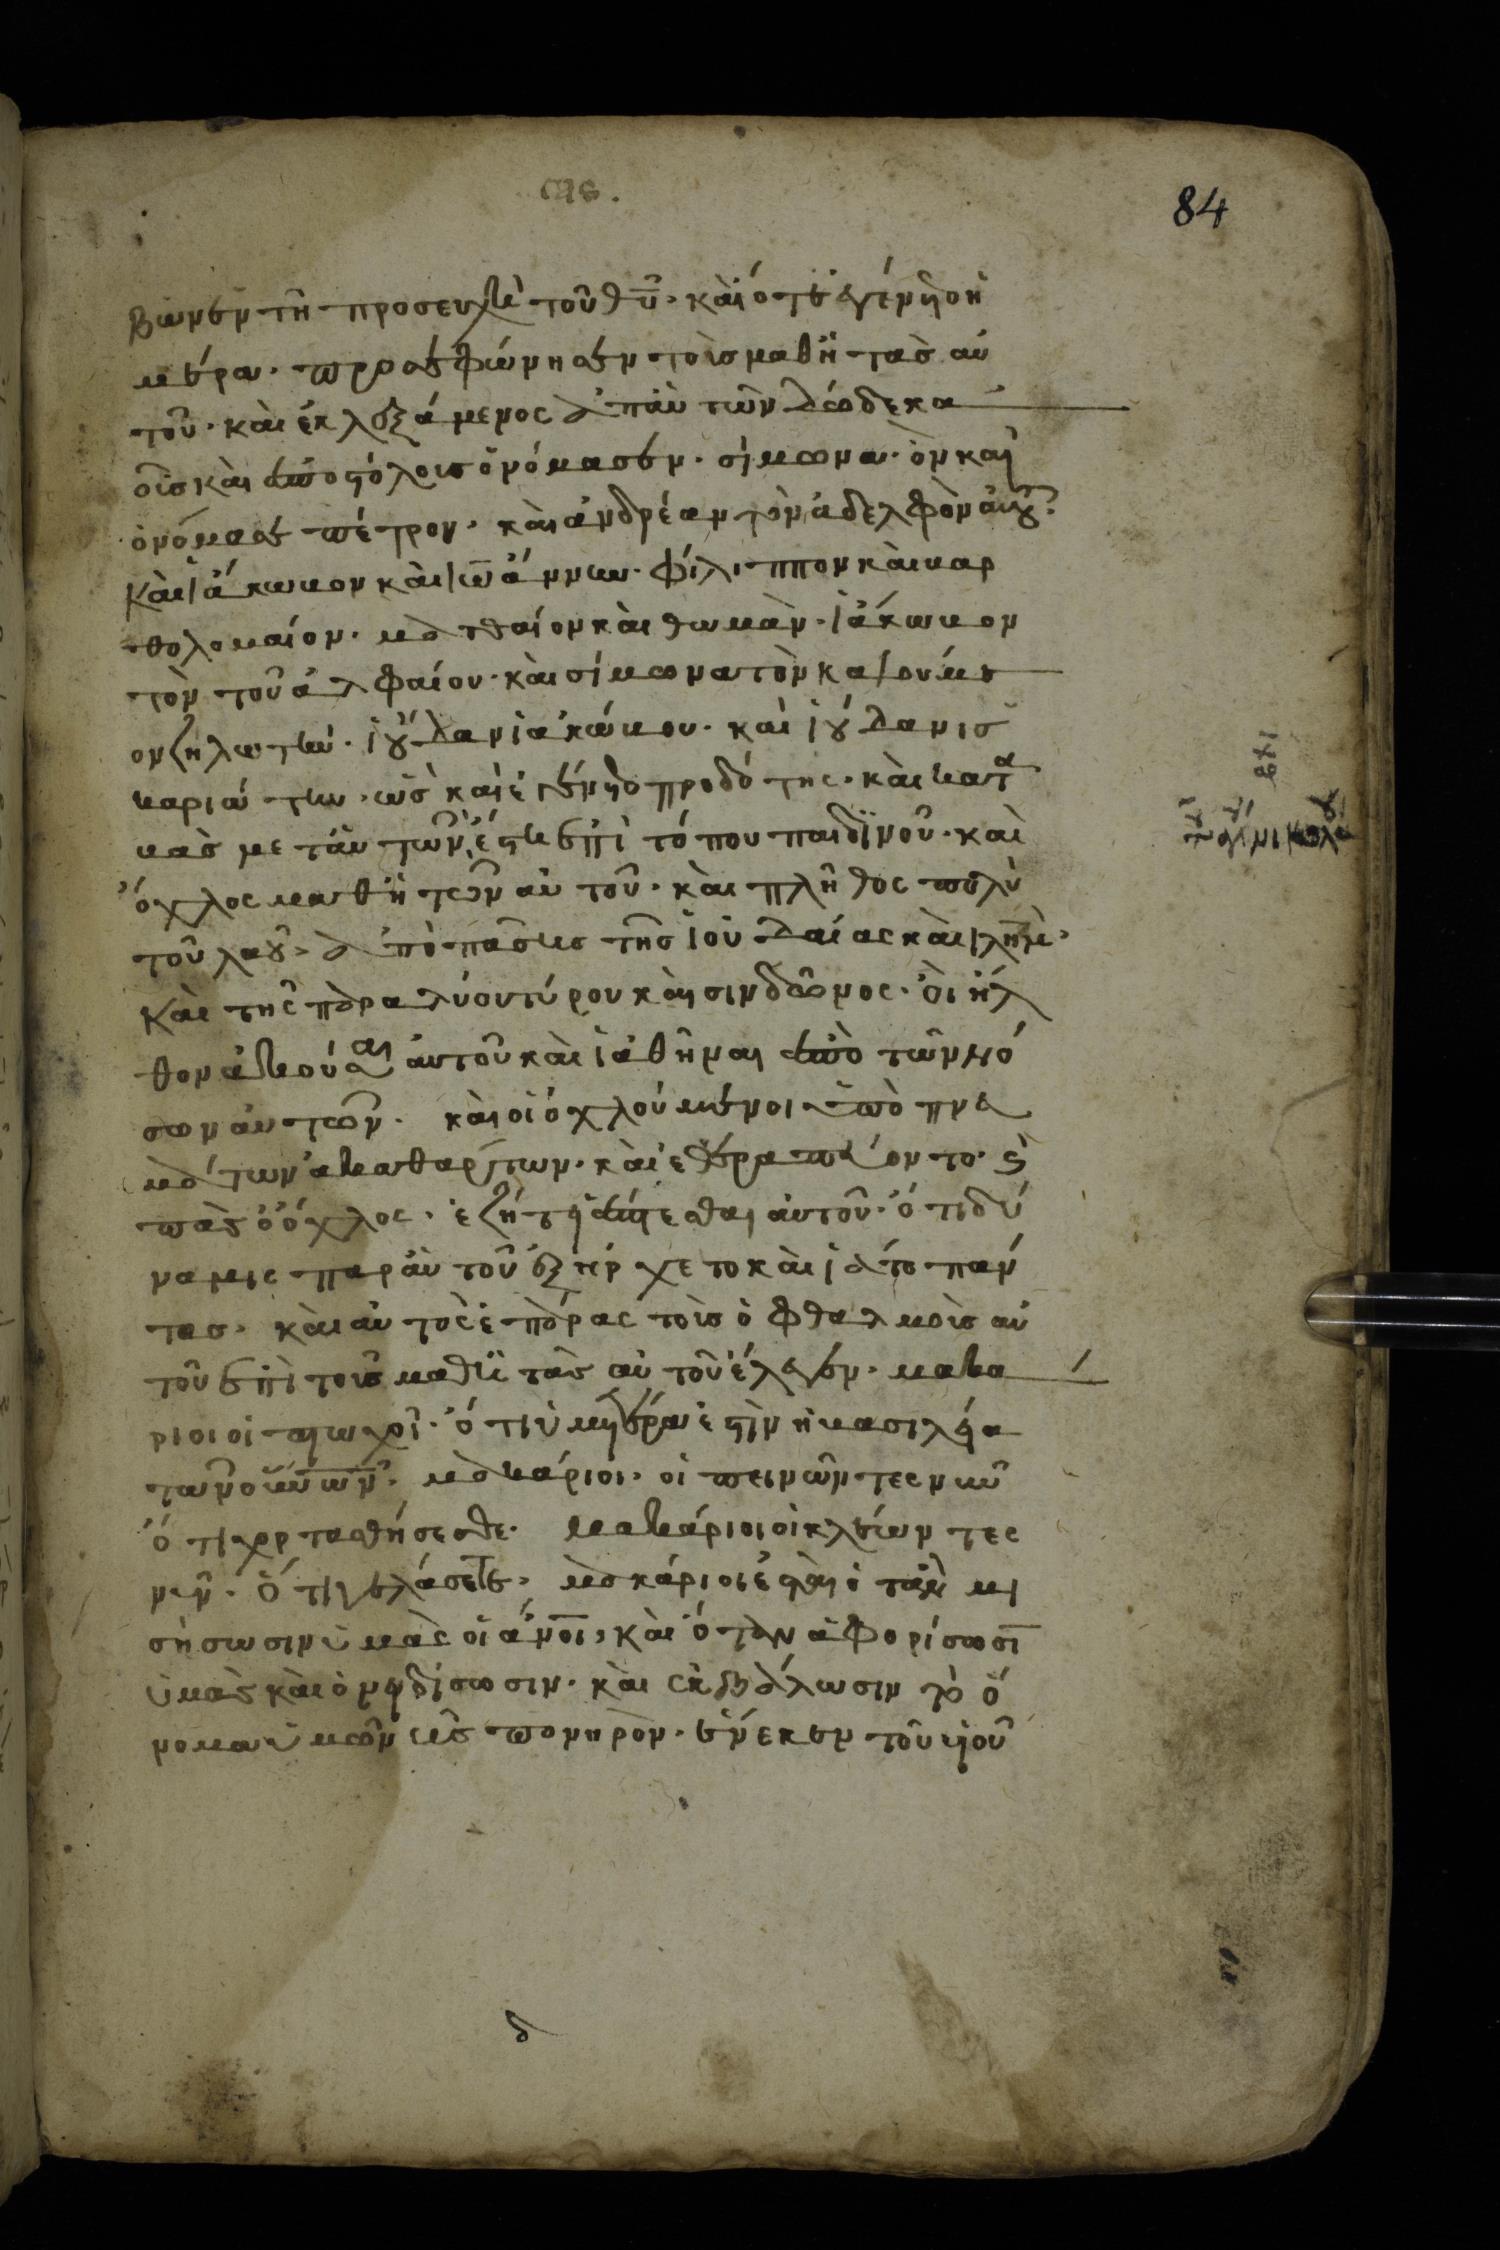 84
βὼν ἐν τῆ προσευχῆ τοῦ θῦ· καὶ ότε ἐγένετο ἡ
μέρα· προσεφώνησεν τοῖς μαθητὰς αὐ
τοῦ· καὶ ἐκλεξάμενος ἀπ' αὐτῶν δώδεκα
οὓς καὶ ἀποστόλοις ὀνόμασεν· σίμωνα· ὃν καὶ
ὀνόμασε πέτρον· καὶ ἀνδρέαν τὸν ἀδελφὸν αὐτοῦ·
καὶ ἰάκωβον καὶ ἰωάννην· φίλιππον καὶ βαρ
θολομαίον· ματθαίον καὶ θωμὰν· ἰάκωβον
τὸν τοῦ ἀλφαίου· καὶ σίμωνα τὸν καλούμε
ον ζηλωτὴν· ἰούδαν ἰακώβου· καὶ ἰούδαν ισ
καριώτην· ὡς καὶ ἐγένετο προδότης· καὶ κατα
βὰς μετ' αὐτῶν, ἔστη ἐπὶ τόπου παιδινοῦ· καὶ
όχλος μαθητῶν αὐτοῦ· καὶ πλῆθος πολὺ
τοῦ λαοῦ· ἀπὸ πάσης τῆς ἰουδαίας καὶ ιλημ·
καὶ τῆς παραλύου τύρου καὶ σινδῶνος· οἳ ἦλ
θον ἀκούσαι αὐτοῦ καὶ ἰαθῆναι ἀπὸ τῶν νό
σων αὐτῶν· καὶ οἱ ὀχλούμενοι ἀπὸ πνε
μάτων ἀκαθαρτων· καὶ ἐθεραπεύοντο· κὶ
πὰς ὁ όχλος· ἐζήτει ἅπτεσθαι αὐτοῦ· ότι δύ
ναμις παρ' αὐτοῦ ἐξήρχετο καὶ ἰάτο πάν
τας· καὶ αὐτὸς ἐπάρας τοῖς ὀφθαλμοὶς αὐ
τοῦ ἐπὶ τοῖς μαθητὰς αὐτοῦ ἔλεγεν· μακα
ριοι οἱ πτωχοὶ· ότι ὑμετέρα ἐστὶν ἡ βασιλεία
τῶν οὐνῶν· μακάριοι· οἱ πεινῶντες νῦν
ότι χορτασθήσεσθε· μακάριοι οἱ κλαίωντες
νῦν· ότι γελάσετε· μακάριοι ἐσται ὁταν μι
σήσωσιν ὑμὰς οἱ ἄνοι, καὶ όταν ἀφορίσωσῖ
ὑμὰς καὶ ὀνειδίσωσιν· καὶ ἐκβάλωσιν τὸ ό
νομα ὑμῶν ὡς πονηρὸν· ἕνεκεν τοῦ υἱοῦ